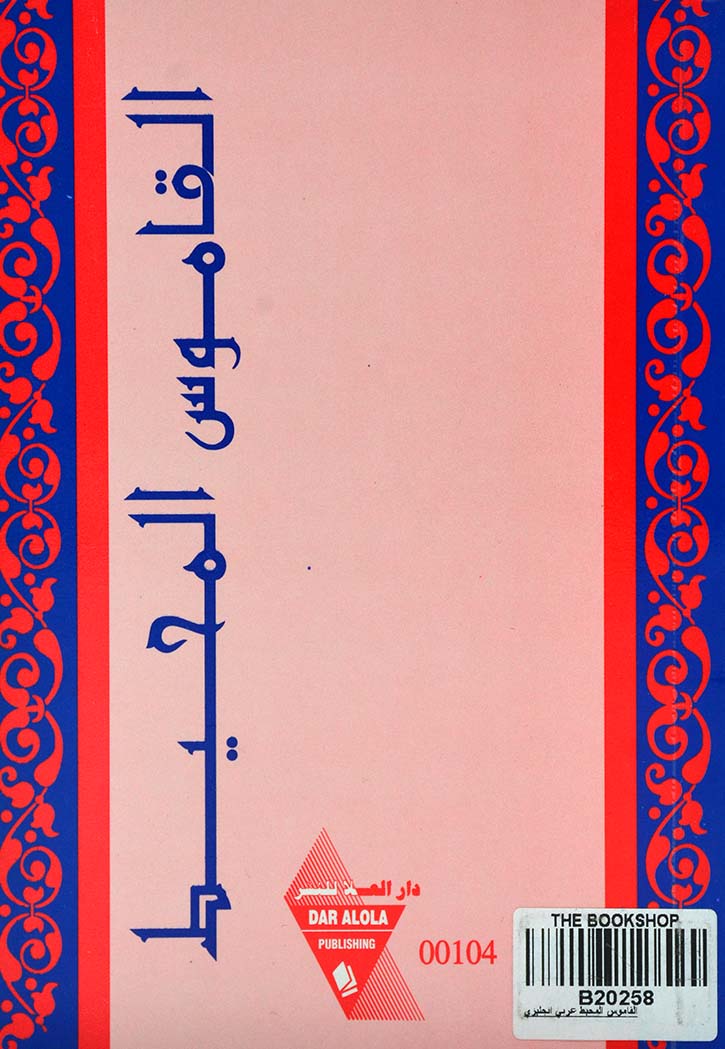 القاموس المحيط
دار العلا للنشر
DAR ALOLA
PUBLISHING
00104
THE BOOKSHOP
B20258
القاموس المحيط عربي انجليزي